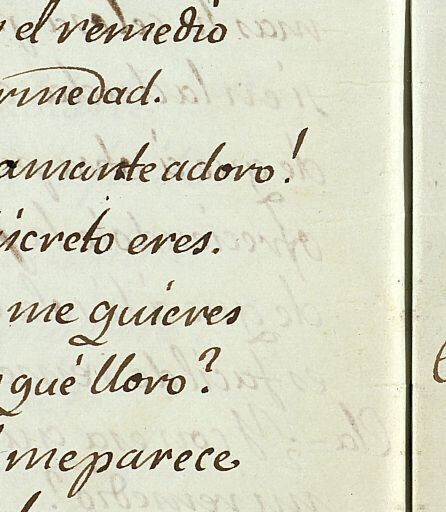 el remedio
rmedad.
amante adoro!
icreto eres.
me quieres
qué lloro?
me parece